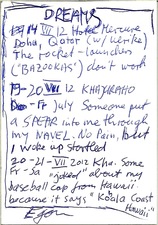 DREAMS
VII 12 Hotel Mercure
Doha, Qatar (w/
The rocket-launchers
('BAZOOKAS') don't work
19-20 VII 12 KHAJURAHO
July Someone put
a SPEAR into me through
my NAVEL. No Pain, but
I woke up startled
20-21 VII 2012 Kha. Some
Fr-Sa "joked" about my
baseball cap from Hawaii
because it says "Koala Coast
Hawaii"
Egon